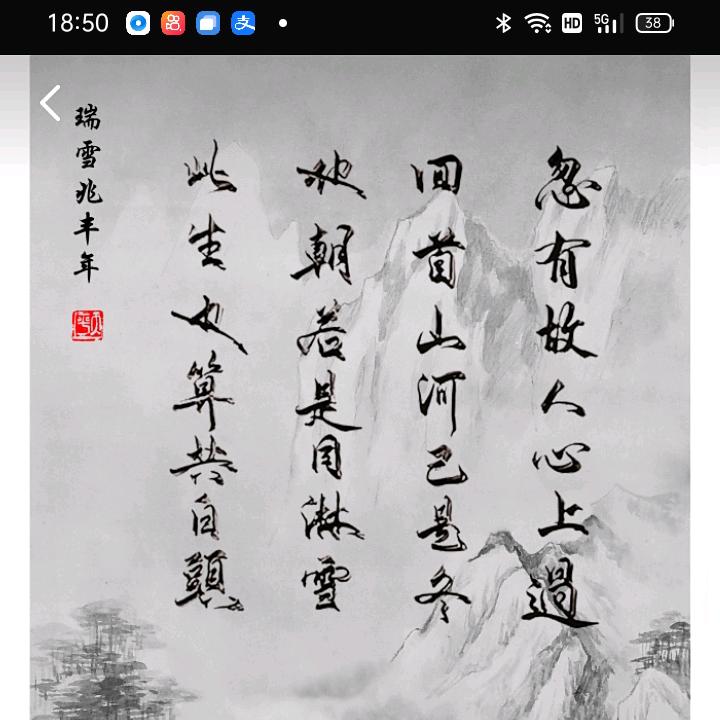 18:50 支 HD 5G 38
忽有故人心上過
回首山河已是冬
他朝若是同淋雪
此生也算共白頭
瑞雪兆丰年